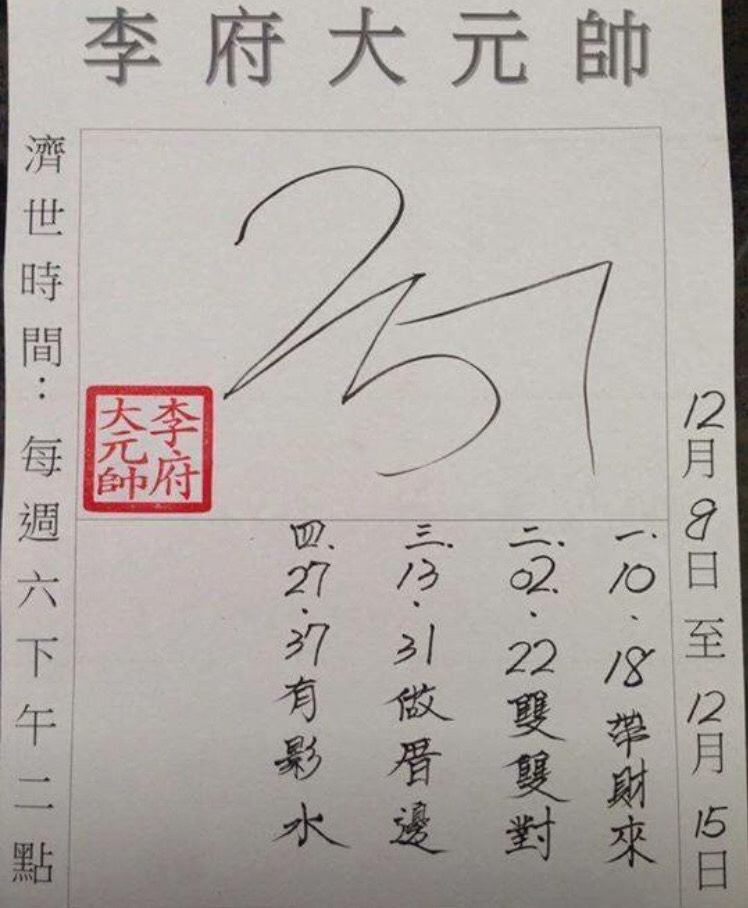 李府大元帥
12月9日至12月15日
一.10.18帶財來
二.02.22雙雙對
三.13.31做厝邊
四.27.37有影水
李府大元帥
濟世時間：每週六下午二點